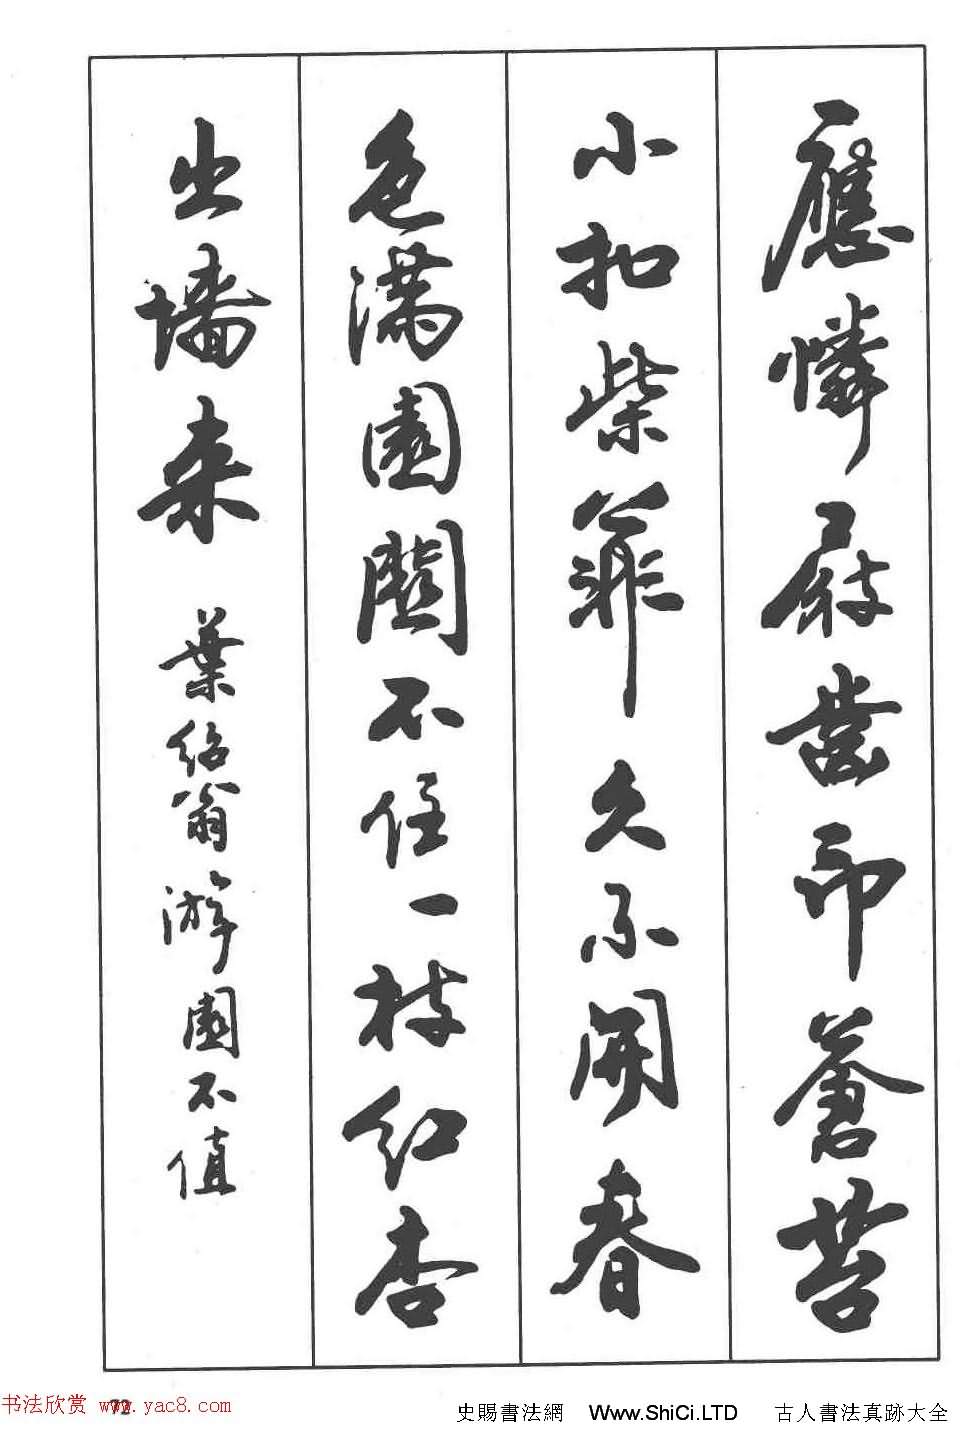 應憐屐齒印蒼苔
小扣柴扉久不開春
色满園關不住一枝红杏
出墙来 葉绍翁游園不值
72
书法欣赏 www.yac8.com
史賜書法網 Www.ShiCi.LTD 古人書法真跡大全